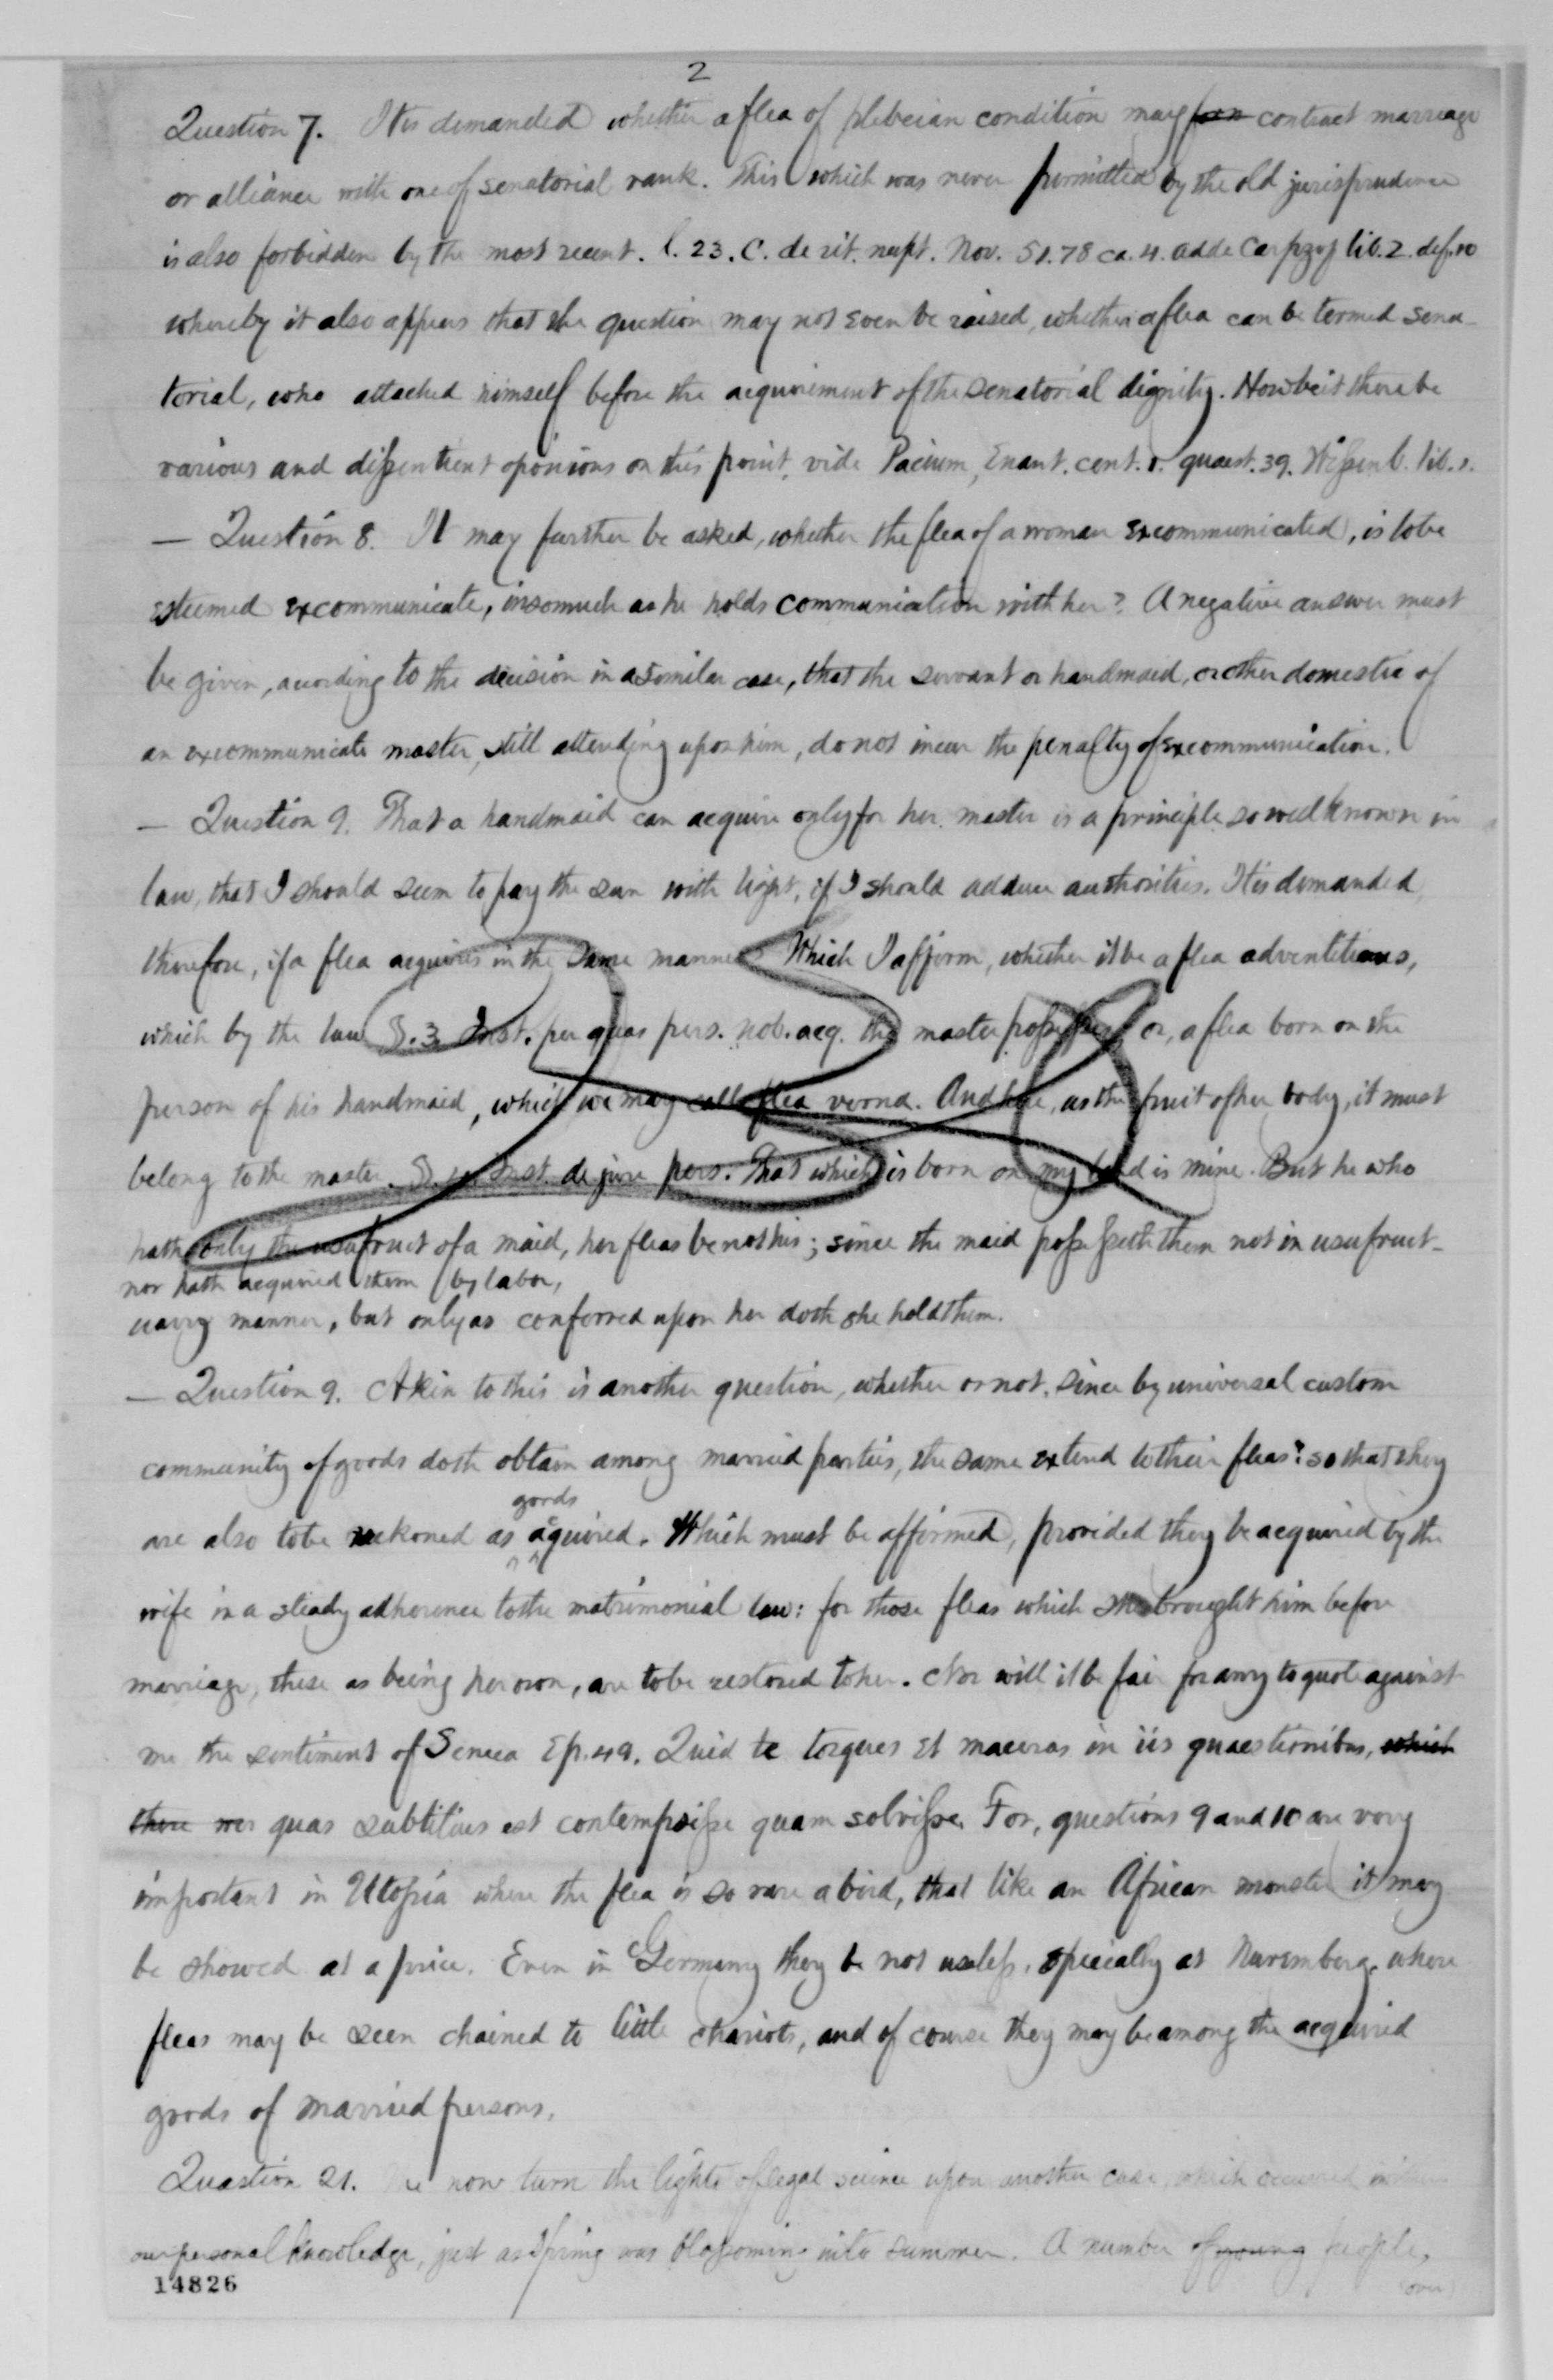 2
Question 7. It is demanded whether a flea of plebeian condition may contract marriage
or alliance with one of senatorial rank. This which was never permitted by the old jurisprudence
is also forbidden by the most recent. l. 23. C. de rit. nupt. Nov. 51. 78 ca. 4. adde Carpzof lib. 2. def. 10
whereby it also appears that the question may not even be raised, whether a flea can be termed sena-
torial, who attached himself before the acquirement of the senatorial dignity. Howbeit there be
various and dissentient opinions on this point, vide Pacium, Enant. cent. 1. quaest. 39. Wissenb. lib. 1.
— Question 8. It may further be asked, whether the flea of a woman excommunicated, is to be
esteemed excommunicate, insomuch as he holds communication with her? A negative answer must
be given, acording to the decision in a similar case, that the servant or handmaid, or other domestic of
an excommunicate master, still attending upon him, do not incur the penalty of excommunication.
— Question 9. That a handmaid can acquire only for her master is a principle so well known in
law, that I should seem to pay the sun with light, if I should adduce authorities. It is demanded,
therefore, if a flea acquires in the same manner. Which I affirm, whether it be a flea adventitious,
which by the law §. 3. Inst. per quas pers. nob. acq. the master possesses, or, a flea born on the
person of his handmaid, which we may call flea verna. And here, as the fruit of her body, it must
belong to the master. §. Inst. de jure pers. That which is born on my land is mine. But he who
hath only the usufruct of a maid, her fleas be not his; since the maid possesseth them not in usufruct-
nor hath acquired them by labor,
uary manner, but only as conferred upon her doth she hold them.
— Question 9. Akin to this is another question, whether or not, since by universal custom
community of goods doth obtain among married parties, the same extend to their fleas? so that they
goods
are also to be reckoned as aquired. Which must be affirmed, provided they be acquired by the
wife in a steady adherence to the matrimonial law: for those fleas which she brought him before
marriage, these as being her own, are to be restored to her. Nor will it be fair for any to quote against
me the sentiment of Seneca Ep. 49. Quid te torques et maceras in iis quaestionibus, which
there quas subtilius est contempsisse quam solvisse. For, questions 9 and 10 are very
important in Utopia where the flea is so rare a bird, that like an African monster it may
be showed at a price. Even in Germany they be not useless, specially at Nuremberg, where
fleas may be seen chained to little chariots, and of course they may be among the acquired
goods of married persons.
Question 21. We now turn the lights of legal science upon another case, which occurred within
our personal knowledge, just as Spring was blossoming into summer. A number of young people,
(over)
14826